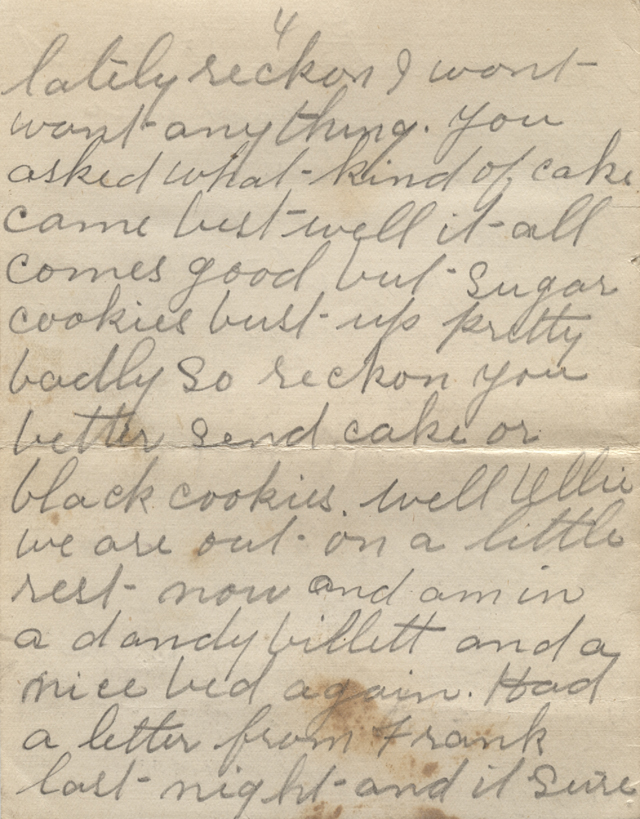 4
lately reckon I wont
want anything. You
asked what kind of cake
came best well it all
comes good but sugar
cookies bust up pretty
badly so reckon you
better send cake or
black cookies. well Ellie
we are out on a little
rest now and am in
a dandy billett and a
nice bed again. Had
a letter from Frank
last night and it sure